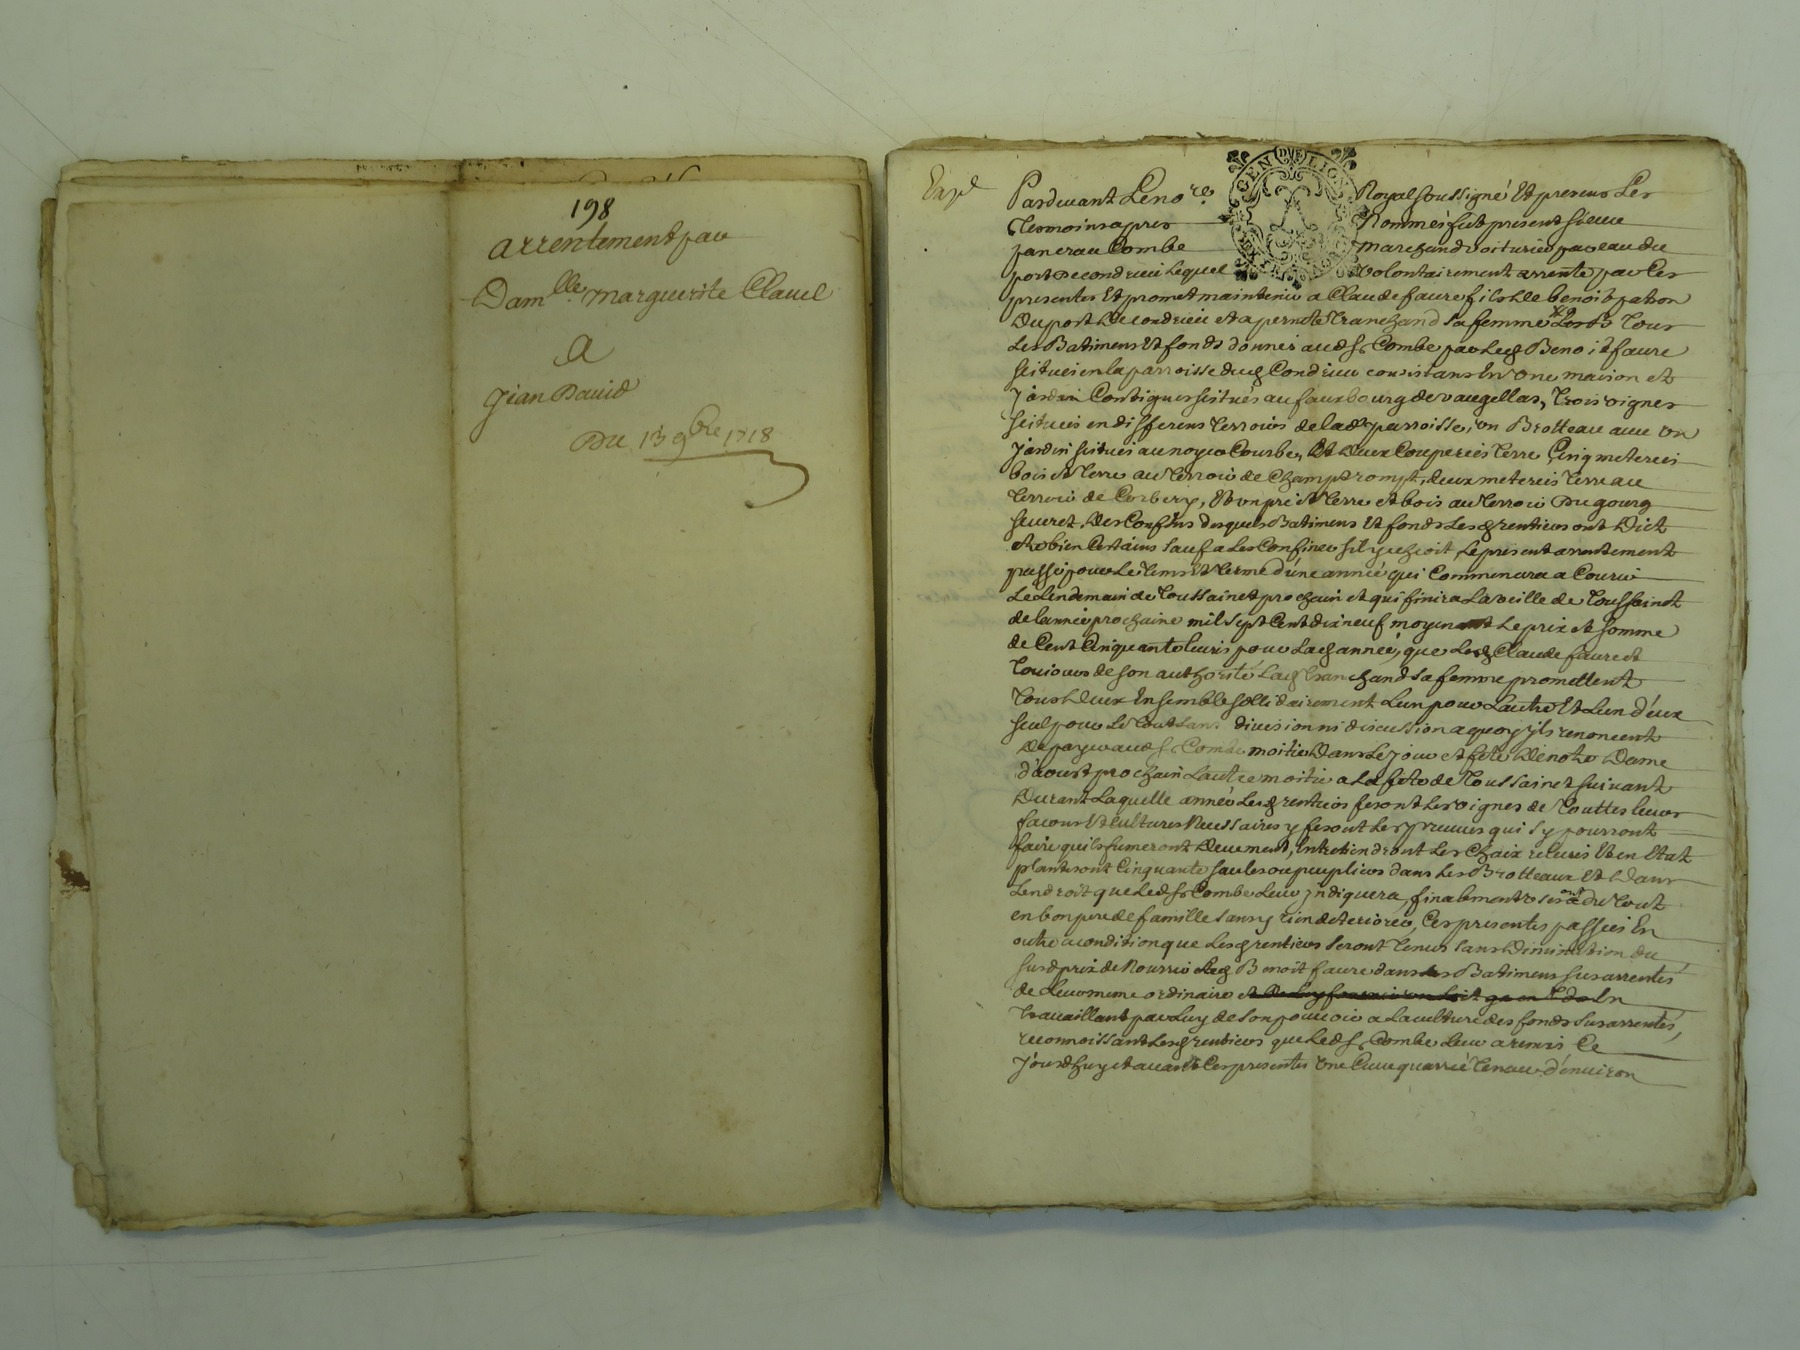 198
arrentement par
Dam.lle marguerite Clavel
A
Jean David
Du 13 9bre 1718
Exp.é
GEN DVE LION
Pardevant Le no.re Royal soussigné Et presens Les
Tesmoins apres Nommés fut present sieur
Combe marchand voiturier par eau du
port de condrieu Lequel volontairement arrente par Ces
presentes Et promet maintenir a Claude faure fils de benoit patron
Du port de condrieu et a pernette Tranchand sa femme Tous
Les Batimens Et fonds donnés aud sr Combe par led Benoit faure
scitués en la parroisse dud Condrieu consistans En Une maison et
Jardin Contigus scitués au fauxbourg de vaugellas, Trois vignes
scituées en differens Terroirs de lad parroisse, un Brotteau avec un
Jardin scitués au noyer Courbe, Et deux Couperées Terre Cinq meterées
bois et Terre au Terroir de Champtrompt, deux meterées Terre au
Terroir de Corbery, Et un pré et Terre et bois au Terroir Du gourg
Des Confins desquels Batimens Et fonds Lesd rentiers ont Dict
etre bien Certains sauf a Les Confiner sil y echoit, Le present arrentement
passé pour Le Tems Et Terme d'une année qui Commencera a Courir
Le Lendemain de Toussainct prochain et qui finira La veille de Toussainct
de lannée prochaine mil sept Cent dix neuf moyenant Le prix et somme
de Cent Cinquante livres pour Lad année, que Led Claude faure et
Toujours de son authorité Lad Tranchand sa femme promettent
Tous Deux Ensemble sollidairement L'un pour Lautre Et L'un d'eux
seul pour Le Tout sans division ni discussion a quoy ils renoncent
De payer aud sr Combe moitié Dans Le jour et fete De notre Dame
d'aoust prochain Lautre moitié a La fete de Toussainct suivant
Durant Laquelle année Lesd rentiers feront Les vignes de Touttes leurs
facons Et Cultures Necessaires y feront Les preuves qui s'y pourront
faire quils fumeront Deuement, Entretiendront Les Chaix relevés Et en Etat
planteront Cinquante saules ou peupliers dans Les Brotteaux Et Dans
Lendroit que Led sr Combe Leur Indiquera, finalement useront du Tout
en bon pere de famille sans y rien deteriorer, Ces presentes passées En
outre a condition que Lesd rentiers seront Tenus sans Diminution du
susd prix de Nourrir Led Benoit faure dans les Batimens susarrentés
de Leur meme ordinaire En
Travaillant par Luy de son pouvoir a La culture des fonds susarrentés,
reconnoissant Lesd rentiers que Led sr Combe Leur a remis Ce
Jourdhuy et avant Ces presentes Une Cuve quarrée Tenant d'environ